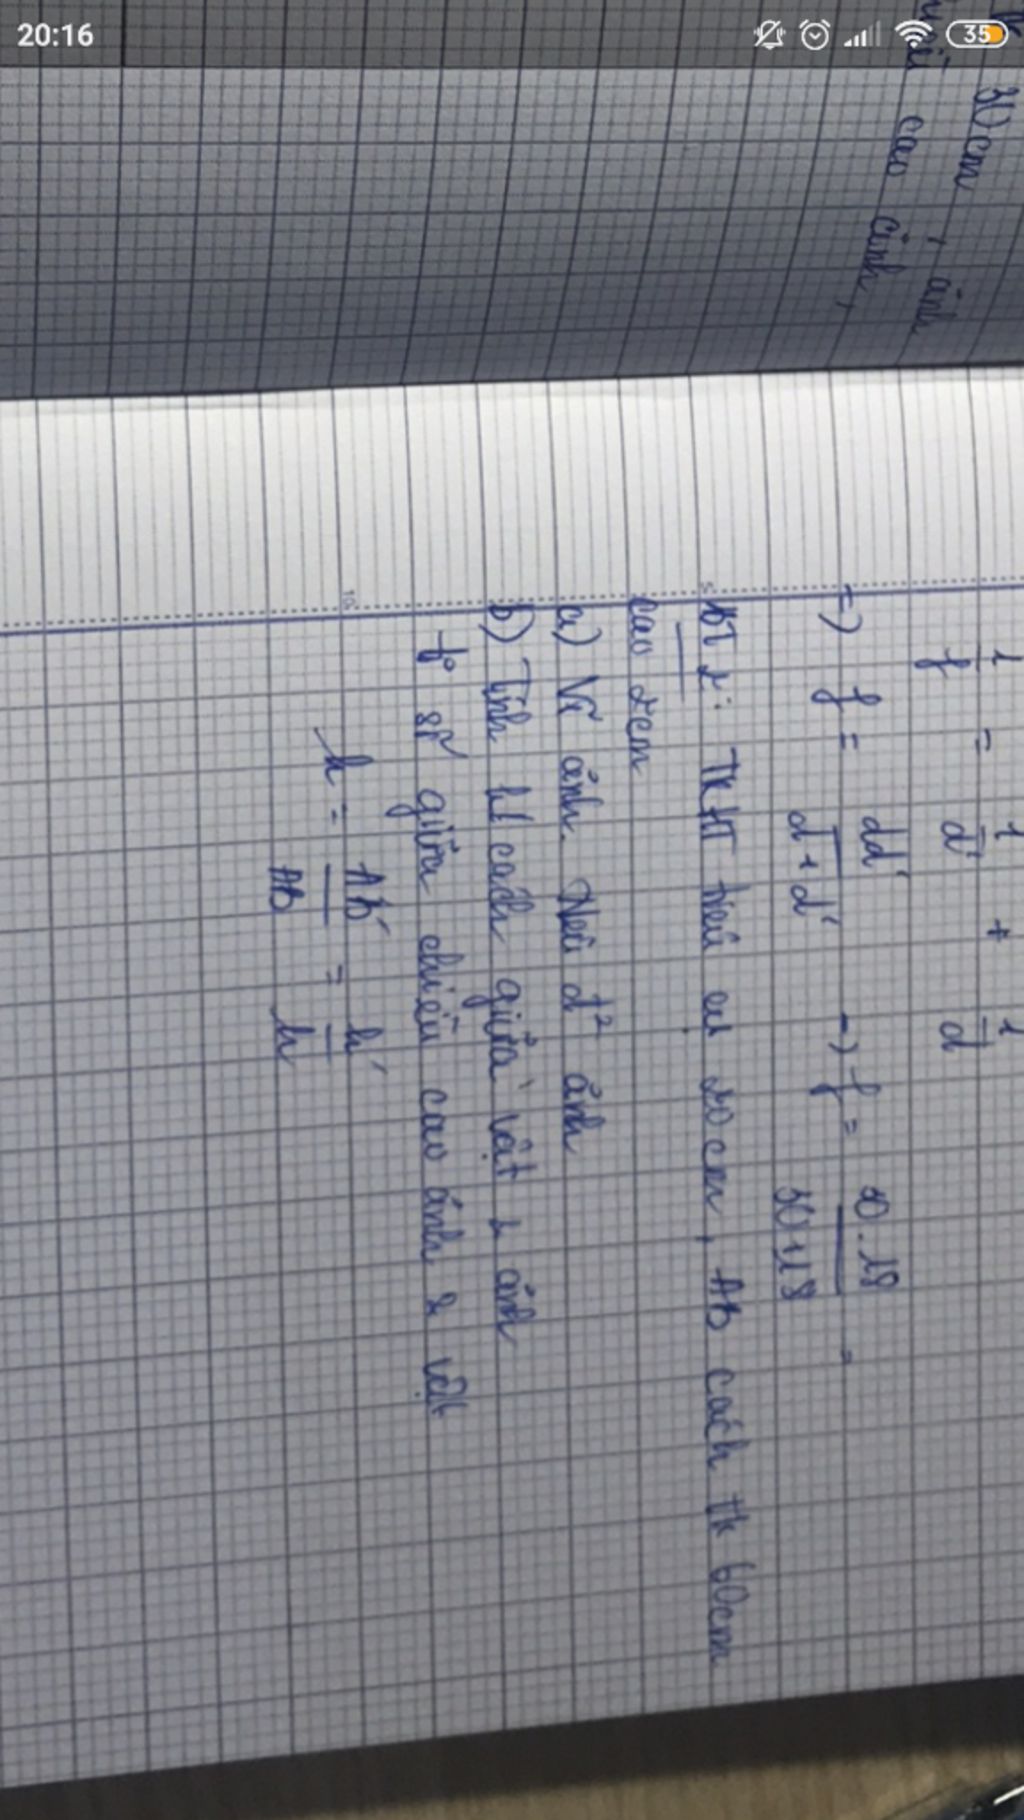 20:16
35
30cm, ảnh
cao ảnh,
1/f = 1/d' + 1/d
=) f = dd'/d+d' -) f = 30.18/30+18 =
BT 2: TKHT tiêu cự 20cm, AB cách tk 60cm
cao 2cm
a) Vẽ ảnh. Nêu đ² ảnh
b) Tính k/c cách giữa vật & ảnh
tº số giữa chiều cao ảnh & vật
k = A'B'/AB = h'/h
5
10